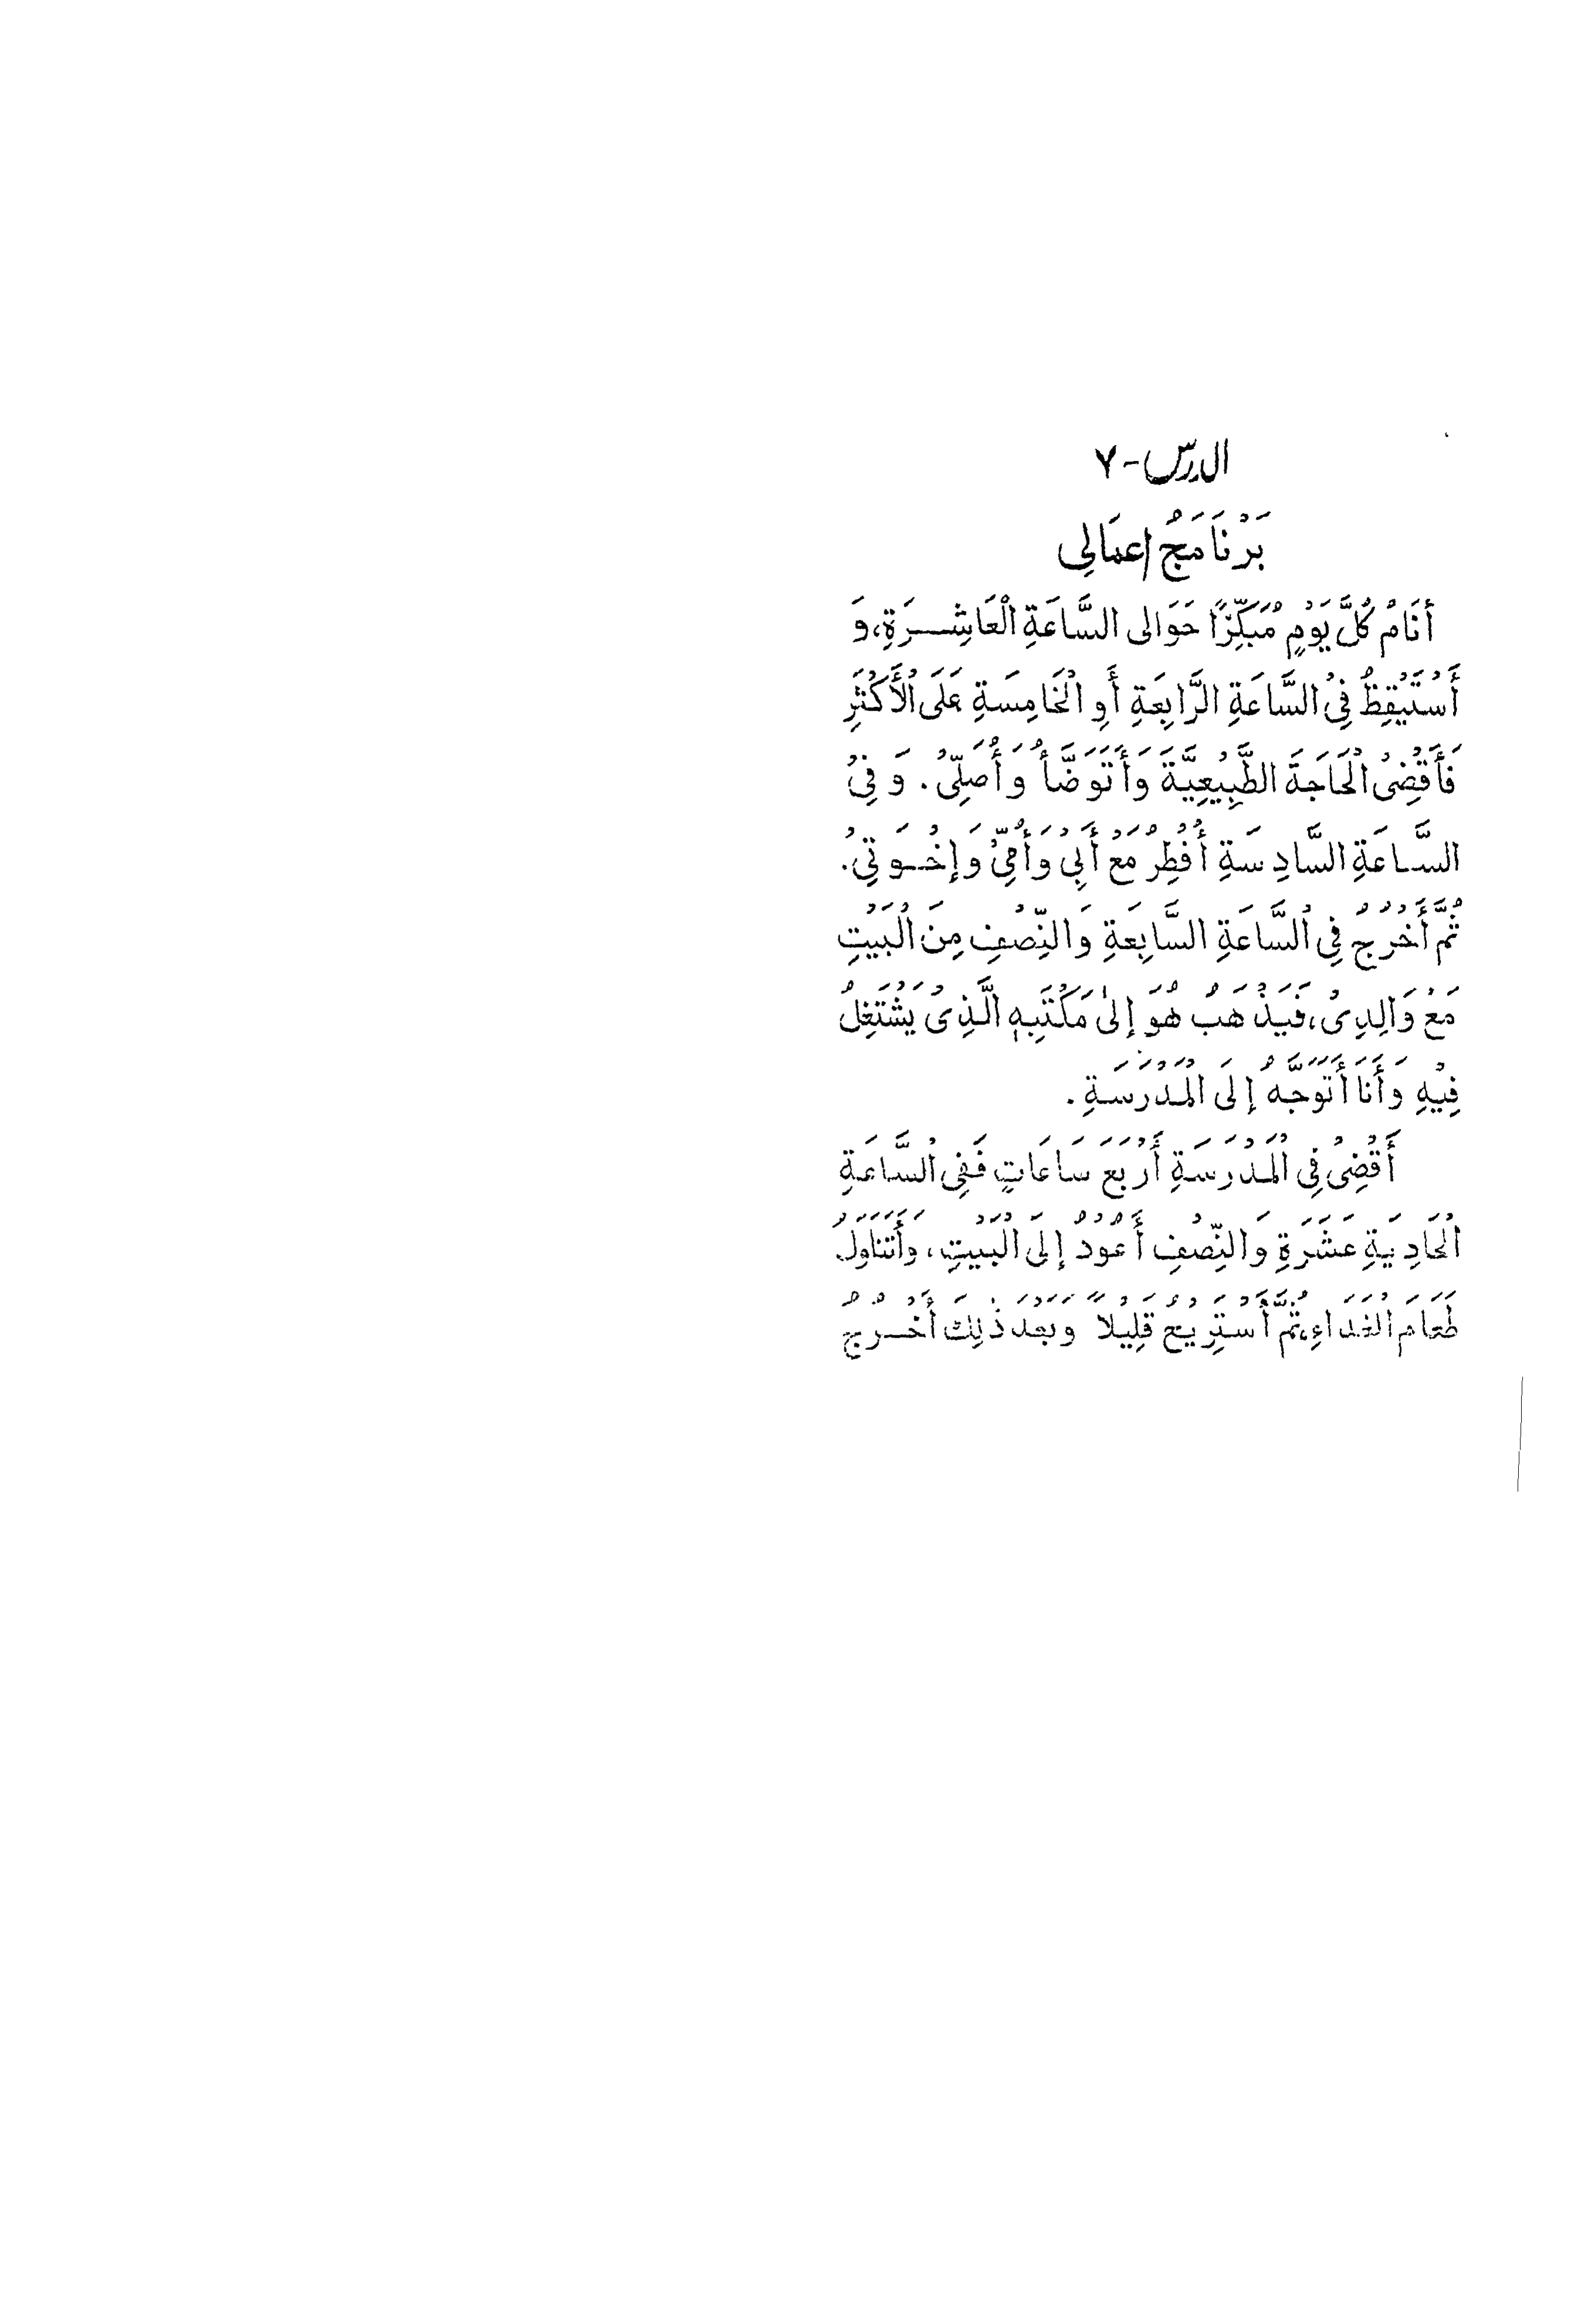 الدرس-٧
بَرْنَامَجُ اعمَالِي
أَنَامُ كُلَّ يَوْمٍ مُبَكِّرًا حَوَالى السَّاعَةِ الْعَاشِرَةِ، وَ
أَسْتَيْقِظُ فِيْ السَّاعَةِ الرَّابِعَةِ أَوِ الْخَامِسَةِ عَلَى الْأَكْثَرِ
فَأَقْضِىْ الْحَاجَةَ الطَّبِيْعِيَّةَ وَأَتَوَضَّأُ وَأُصَلِّىْ. وَفِىْ
السَّاعَةِ السَّادِسَةِ أُفْطِرُ مَعْ أَبِىْ وَأُمِّىْ وَإِخْوَتِىْ.
ثُمَّ أَخْرُجُ فِى السَّاعَةِ السَّابِعَةِ وَالنِّصْفِ مِنَ الْبَيْتِ
مَعْ وَالِدِىْ، فَيَذْهَبُ هُوَ إِلىٰ مَكْتَبِهٖ الَّذِىْ يَشْتَغِلُ
فِيْهِ وَأَنَا أَتَوَجَّهُ إِلَى الْمَدْرَسَةِ.
أَقْضِىْ فِى الْمَدْرَسَةِ أَرْبَعَ سَاعَاتٍ فَفِى السَّاعَةِ
الْحَادِيَةِ عَشَرَةِ وَالنِّصْفِ أَعُوْدُ إِلَى الْبَيْتِ، وَأَتَنَاوَلُ
طَعَامَ الْغَدَاءِ، ثُمَّ أَسْتَرِيْحُ قَلِيْلاً وَبَعْدَ ذٰلِكَ أَخْرُجُ